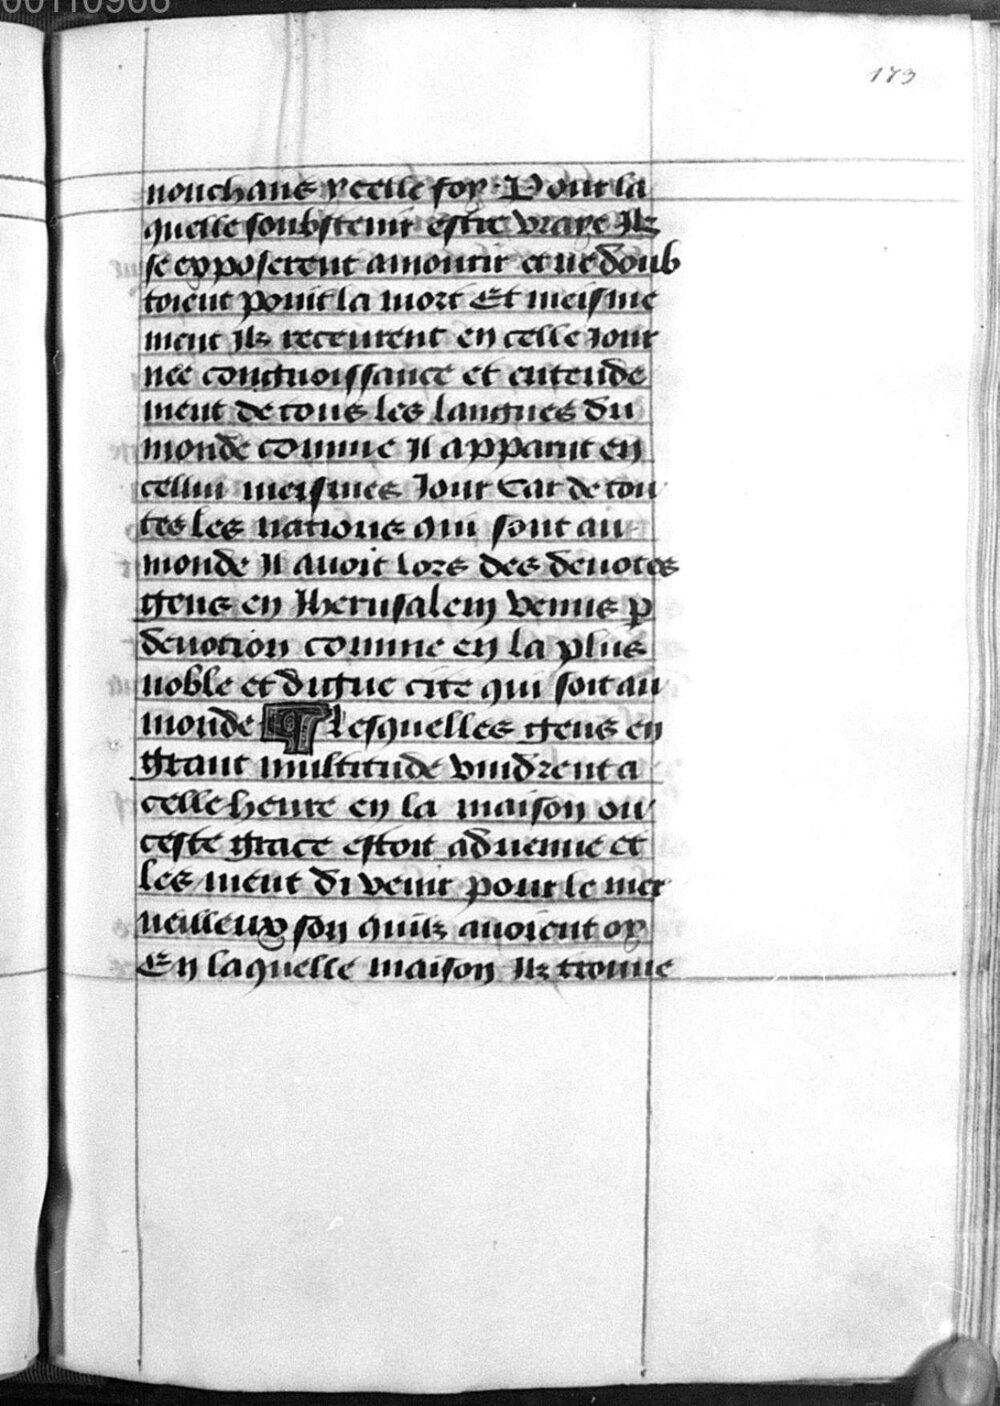 00110908
173
nonchans ycelle foy. Pour la
quelle soubstenir estre vraye Ilz
se exposerent amourir et ne doub
toient point la mort Et meisme
ment Ilz receurent en celle Jour
nee congnoissance et entende
ment de tous les langues du
monde comme Il apparut en
cellui meismes Jour Car de tou
tes les nations qui sont au
monde Il auoit lors des deuotes
gens en Jherusalem venus p
deuotion comme en la plus
noble et digne cite qui soit au
monde ¶ Lesquelles gens en
grant multitude vindrent a
celle heure en la maison ou
ceste grace estoit aduenue et
les meut di venir pour le mer
ueilleux son quilz auoient oy
En laquelle maison Ilz trouue